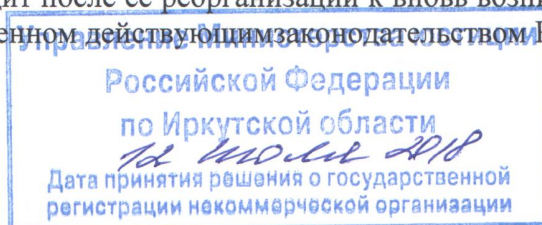 дит после ее реорганизации к вновь возни
енном действующимзаконодательством
Управление Министерства юстиции
Российской Федерации
по Иркутской области
12 июля 2018
Дата принятия решения о государственной
регистрации некоммерческой организации